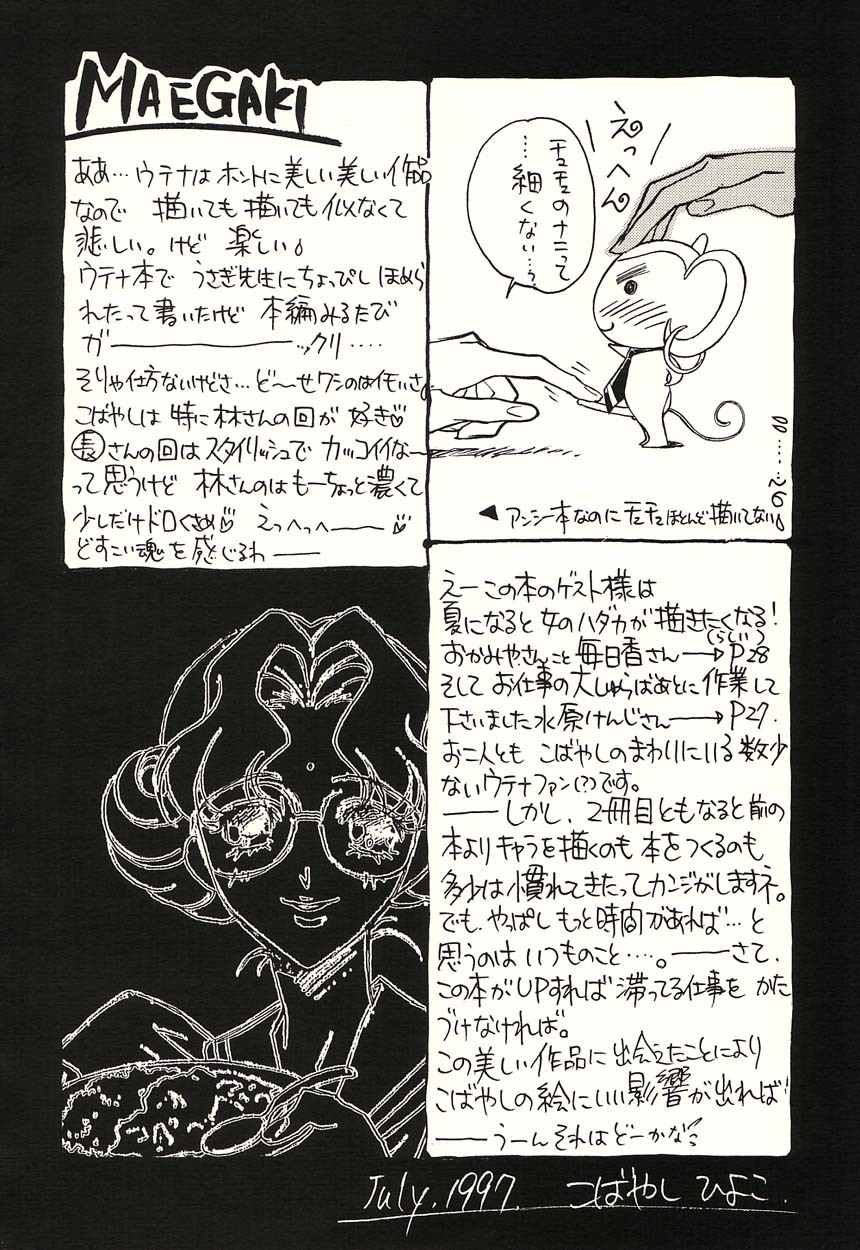 MAEGAKI
ああ…ウテナはホントに美しい美しい作品
なので 描いても描いても似なくて
悲しい。けど 楽しい♪
ウテナ本で うさぎ先生にちょっぴし ほめら
れたって書いたけど 本編みるたび
ガ―――――――ックリ‥‥
そりゃ仕方ないけどさ…ど〜せワシのはイモいさ。
こばやしは 特に林さんの回が 好き♡
長さんの回は スタイリッシュで カッコイイな〜
って思うけど 林さんのはもーちょっと濃くて
少しだけドロくさめ♡ えっへっへ――♡
どすこい魂を感じるわ――
えっへん
チュチュのナニって
…細くない…?
◀アンシー本なのにチュチュほとんど描いてない。
えー この本のゲスト様は
夏になると 女のハダカが描きたくなる!
おかみやさんこと毎日香さん→P28
そして お仕事の大しゅらばあとに作業して
下さいました水原けんじさん→P27.
お二人とも こばやしのまわりにいる 数少
ないウテナファン(?)です。
――しかし、2冊目ともなると前の
本より キャラを描くのも 本をつくるのも
多少は慣れてきたってカンジがしますネ。
でも、やっぱし もっと時間があれば…と
思うのは いつものこと‥‥。――さて、
この本がUPすれば 滞ってる仕事を かた
づけなければ。
この美しい作品に 出会えたことにより
こばやしの絵にいい影響が出れば!
――うーん それはどーかな?
July.1997. こばやし ひよこ.